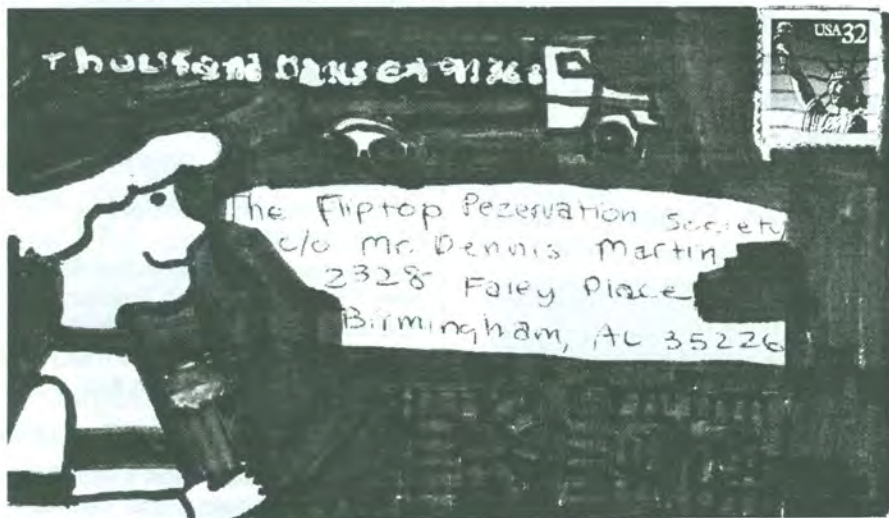 Thousand Oaks CA 91360
USA 32
The Fliptop Pezervation Society
c/o Mr. Dennis Martin
2328 Faley Place
Birmingham, AL 35226